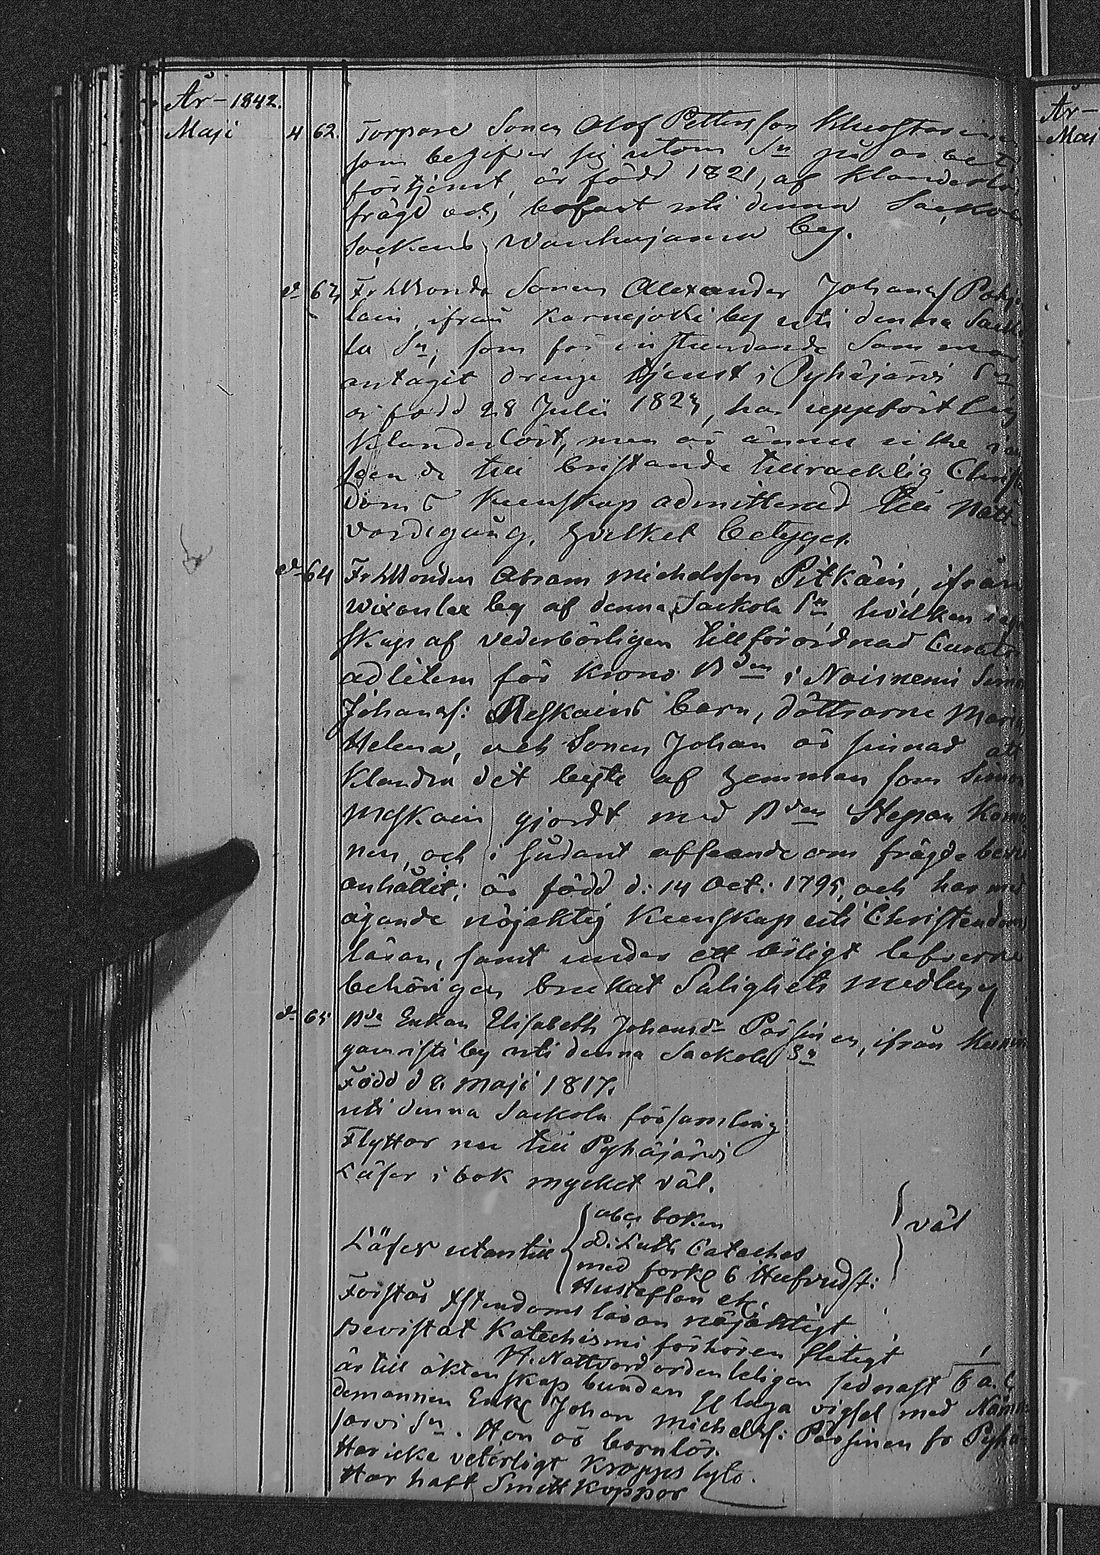 År - 1842.
Maji 4 62. Torpare Sonen Olof Pettersson
som begifver sig utom Sn på arbets
förtjenst, är född 1821, af klanderlös
frägd och bofast uti denna Sackola
Sockens Wanhajama by.
d- 63 Fr. Bonde Sonen Alexander Johansf Pohja
lain, ifrån Karnajoki by uti denna Sacko
la Sn, som för instundande
antagit drenge tjenst i Pyhäjärvi Sn
är född 28 Julii 1823, har uppfört sig
klanderlöst, men är ännu icke i an
seende till bristande tillräcklig Christen
doms kunskap admitterad till Natt-
vardsgång, hvilket betygas.
d- 64 Fr. Bonden Abram Michelsson Pitkäin, ifrån
by af denna Sackola Sn, hvilken i egen
skap af vederbörligen tillförordnad Curator
ad litem för Krono Bden i Noisnemi Simon
Johansf: Meskains barn, döttrarne Maria
Helena, och Sonen Johan är sinnad att
klandra det byte af hemman som Simon
Meskain gjordt med Bden Stepan Komo
nen, och i sådant afseende om frägde bevis
anhållit; är född d: 14 Oct: 1795, och har med
ägande nöjaktig kunskap uti Christendoms
läran, samt under ett ärligt lefverne
behörigen brukat Salighets medlen
d- 65 Bde Enkan Elisabeth Johansdr Pässinen, ifrån
by uti denna Sackola Sn
Född d 8 Maji 1817.
uti denna Sackola församling
Flyttar nu till Pyhäjärvi
Läser i bok mycket väl.
Läser utantill { abc boken } väl
D: Luth Cateches
med förkl 6 Hufvudst:
Hustaflan etc
Förstår Xstendoms läran nöjaktigt
Bevistat Katechismi förhören flitigt
H. Nattvard ordenteligen sednast 6
är till äktenskap bunden Utaga vigsel med Näm
demannen Enkl Johan Michelsf: Pässinen fr Pyhä
järvi Sn. Hon är barnlös.
Har icke veterligt kropps lyte.
Har haft Smittkoppor
År -
Maj